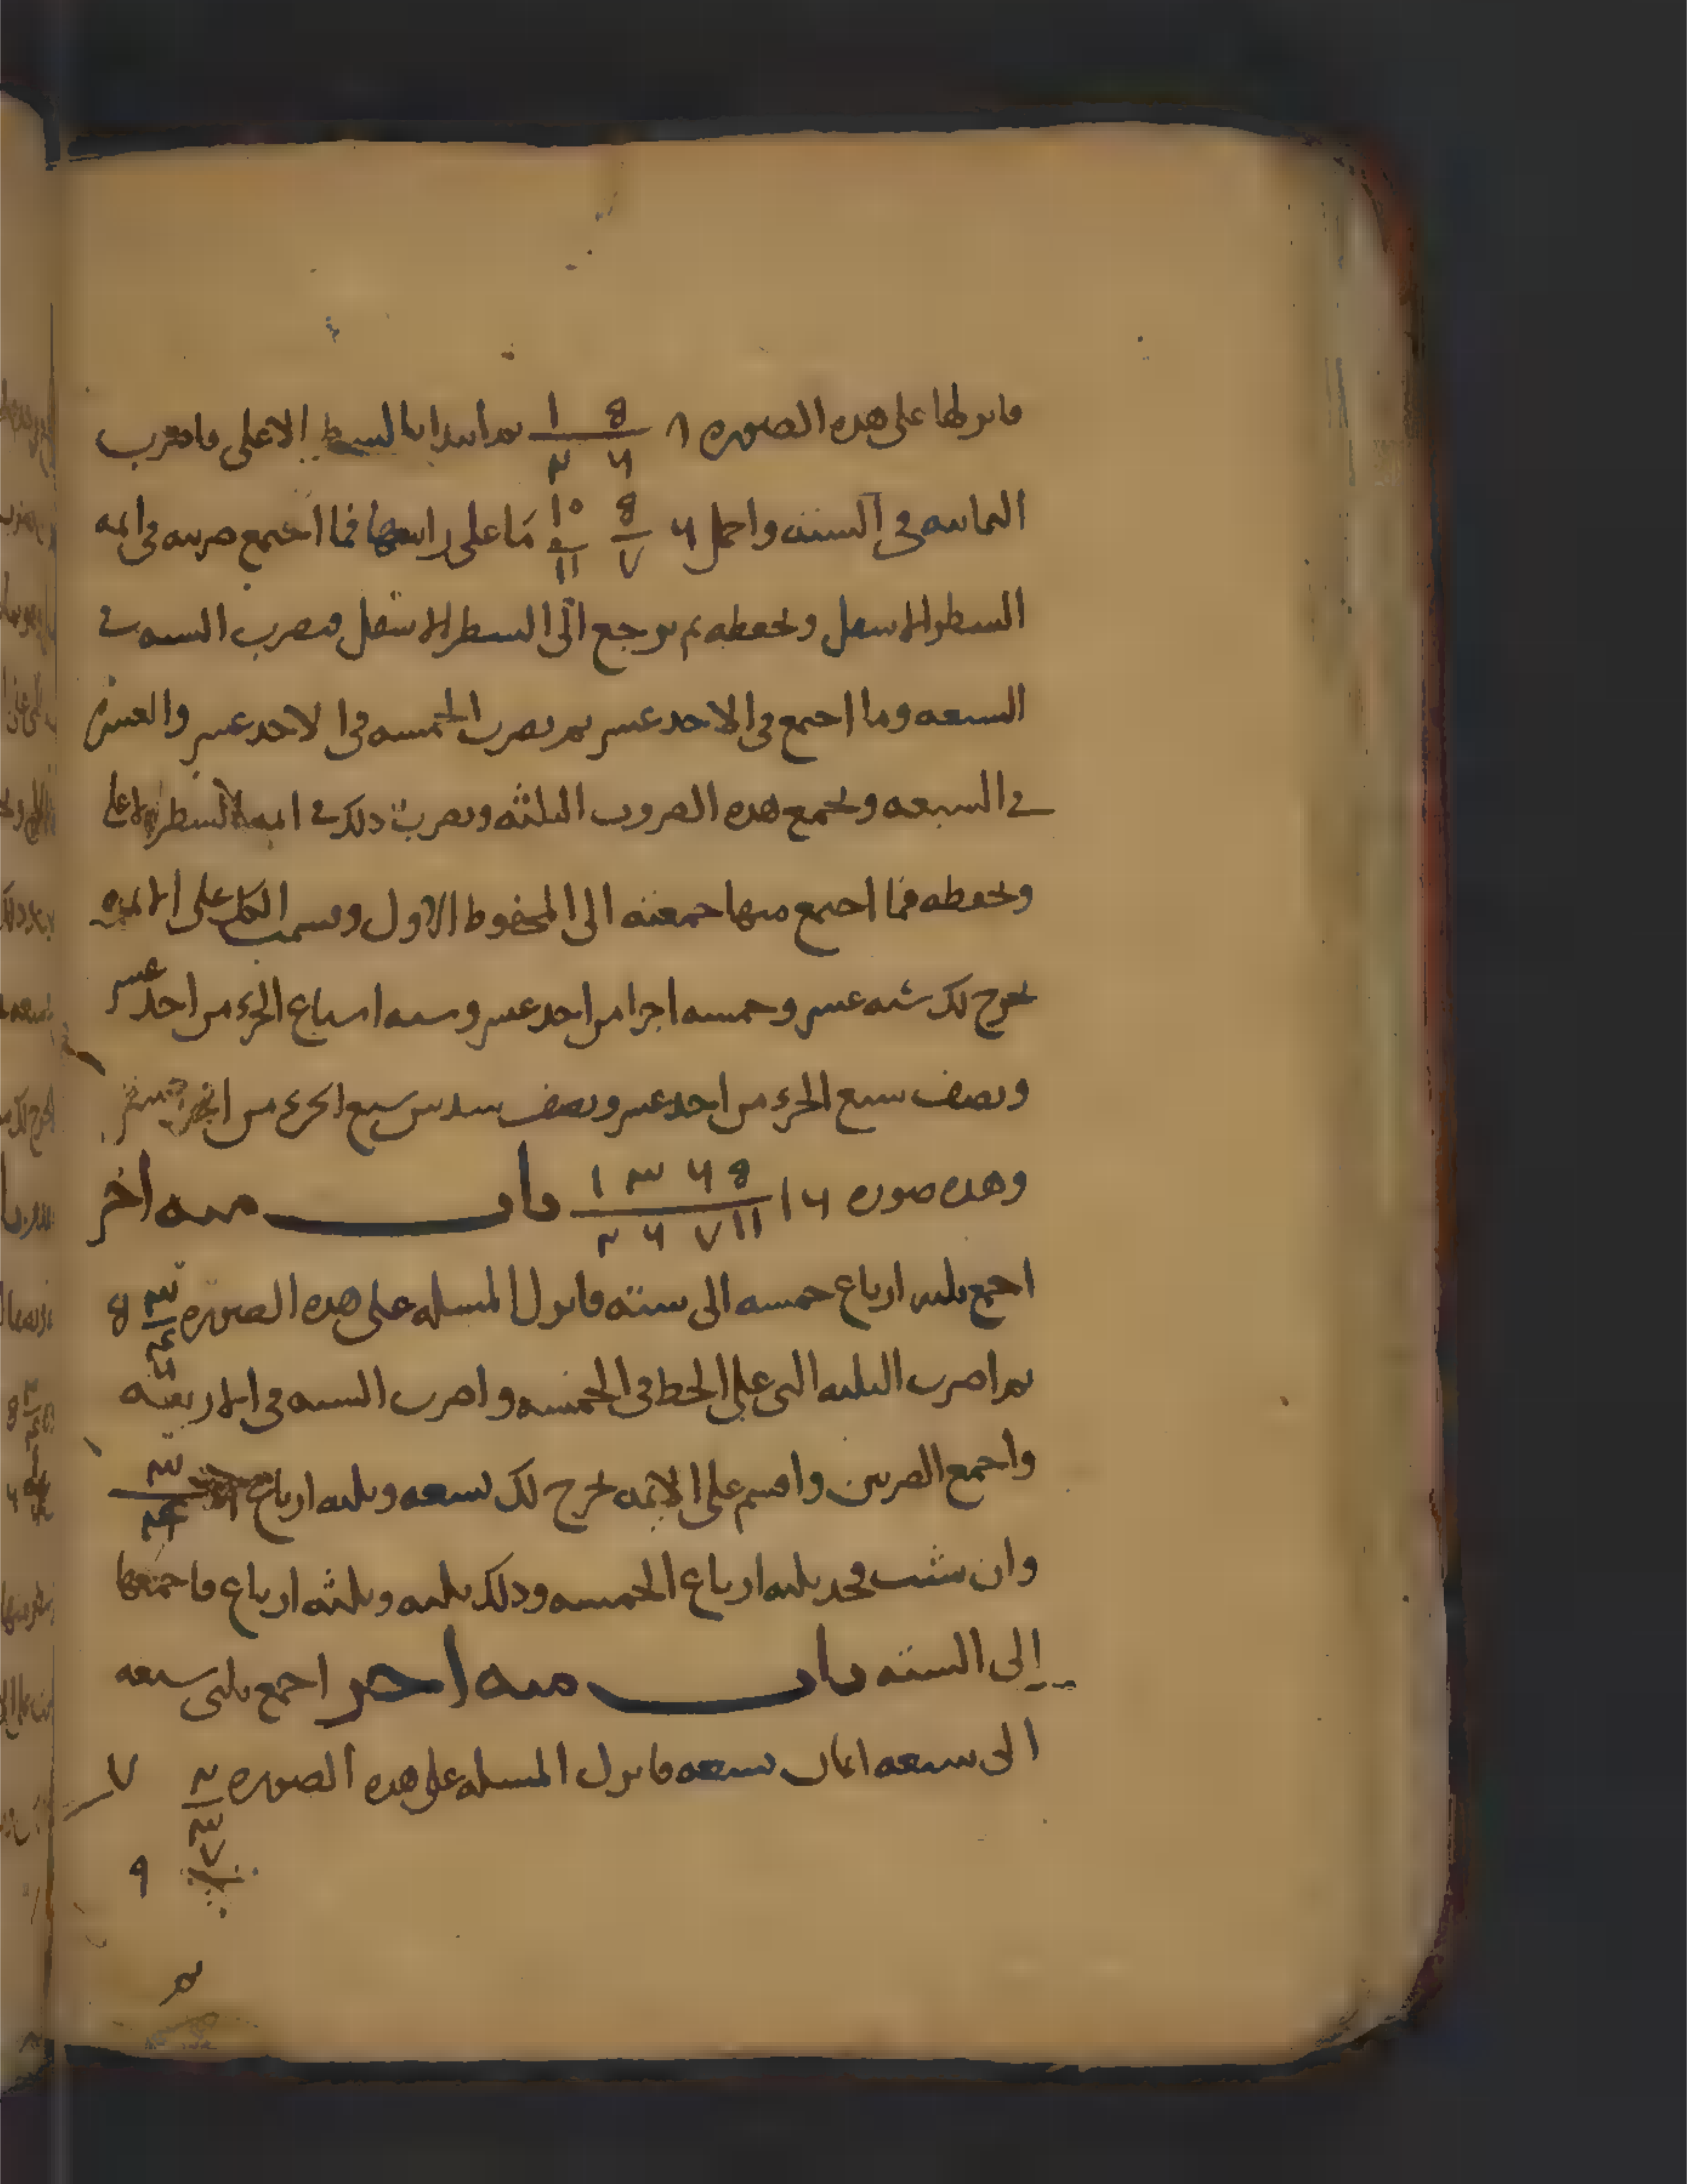 فانزلها على هذه الصوره ٨ ١ 8 / ٢ ٦ ثم ابدا بالسطر الاعلى فاضرب
الثمانيه في الستة واحمل ٦ 8 / ٧ ١٠ / ١١ ما على راسها فما اجتمع ضربته في ايمه
السطر الاسفل وتحفظه ثم ترجع الى السطر الاسفل فتضرب السته في
السبعه وما اجتمع في الاحد عشر ثم تضرب الخمسه في الاحد عشر والعشره
في السبعه وتجمع هذه الضروب الثلثه وتضرب ذلك في ايمه السطر الاعلى
وتحفظه فما اجتمع منها جمعته الى المحفوظ الاول وقسمت الكل على الايمه
يخرج لك سته عشر وخمسه اجزا من احد عشر وسته اسباع الجزء من احد عشر
ونصف سبع الجزء من احد عشر ونصف سدس سبع الجزء من احد عشر
وهذه صوره ١٦ ١ ٣ ٦ 8 / ٢ ٦ ٧ ١١ باب منه اخر
اجمع ثلثه ارباع خمسه الى سته فانزل المسله على هذه الصوره ٣ / ٤ 8
٦
ثم اضرب الثلثه التي على الخط في الخمسه واضرب السته في الاربعه
واجمع الضربين واقسم على الايمه يخرج لك تسعه وثلثه ارباع ٣ / ٤
وان شئت فخذ ثلثه ارباع الخمسه وذلك ثلثه وثلثه ارباع فاجمعها
الى السته باب منه اخر اجمع ثلثي سبعه
الى سبعه اثمان تسعه فانزل المسله على هذه الصوره ٢ / ٣ ٧
٧ ٩